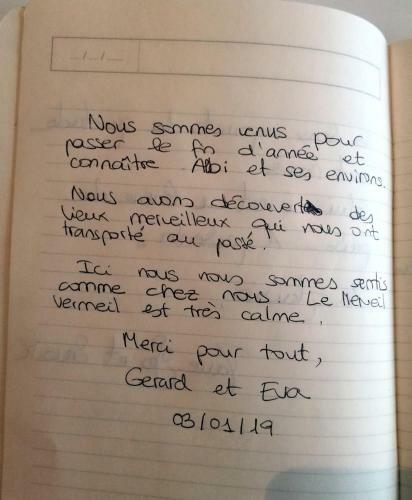 _/_/_
Nous sommes venus pour
passer le fin d'année et
connaître Albi et ses environs.
Nous avons découvert des
lieux merveilleux qui nous ont
transporté au passé.
Ici nous nous sommes sentis
comme chez nous. Le Merveil
Vermeil est très calme.
Merci pour tout,
Gerard et Eva
03/01/19